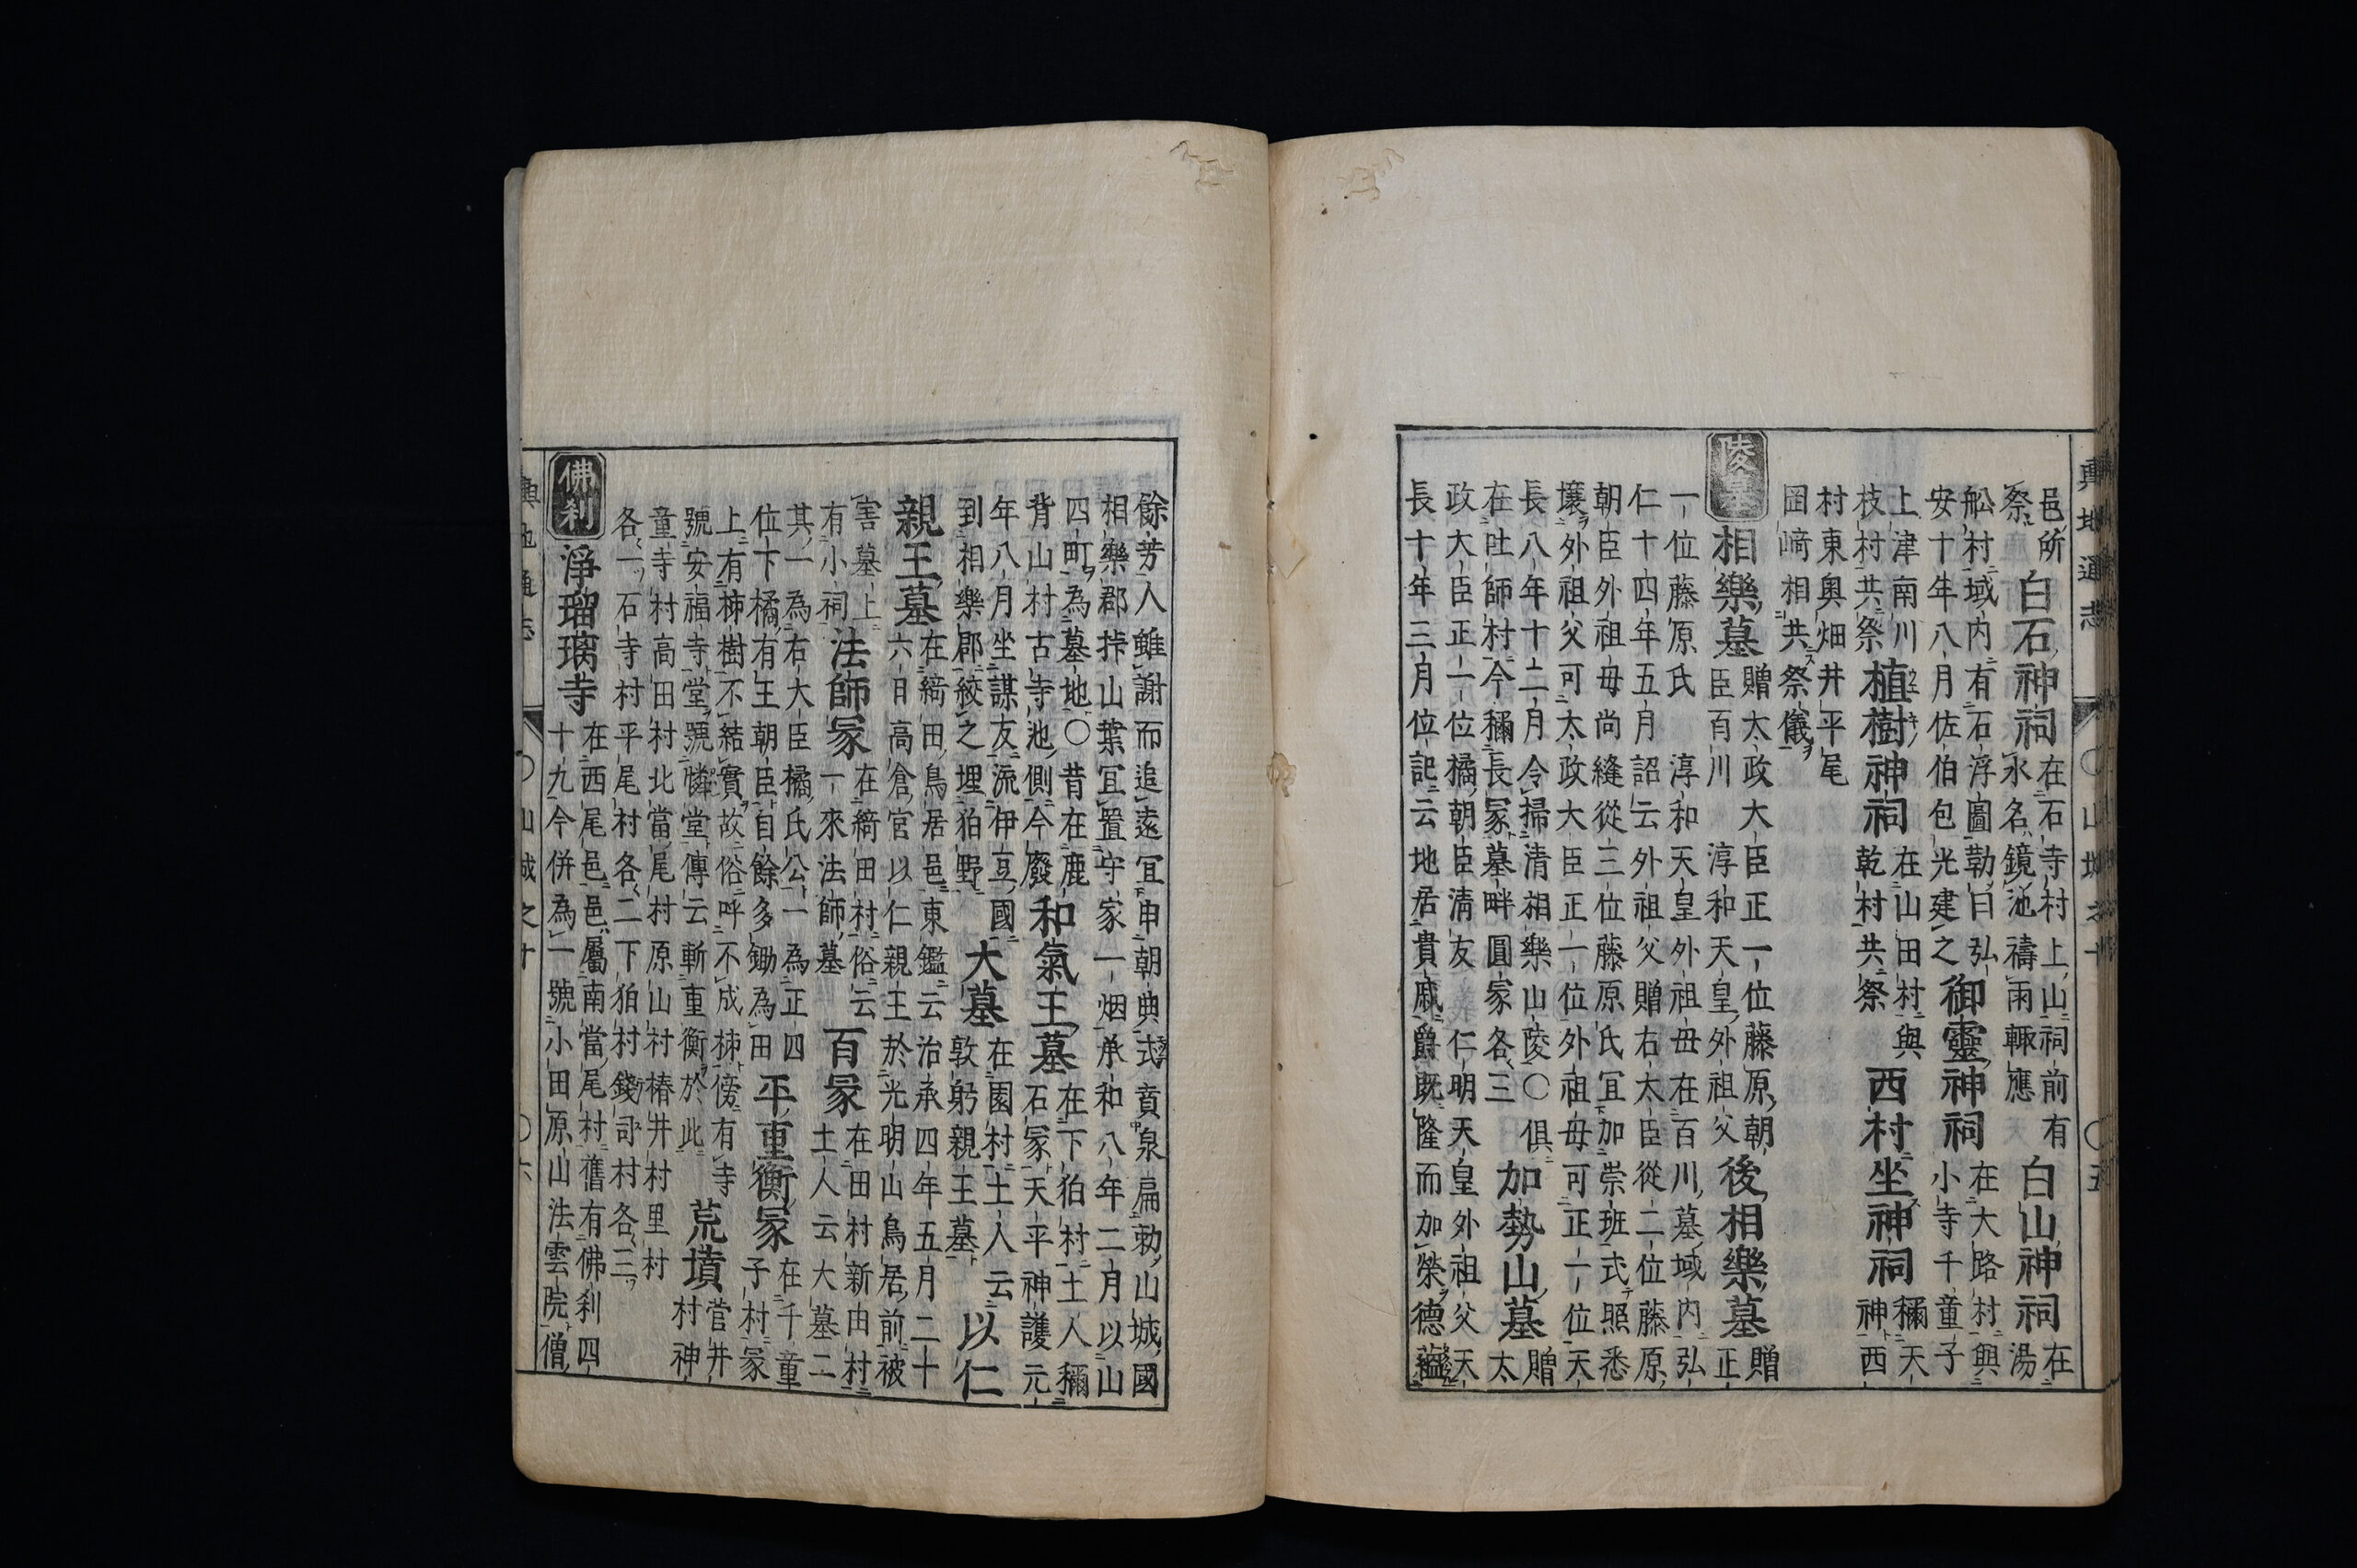 輿地通志 〇山城之十 〇五
邑所
祭
白石神祠
在石寺村上山祠前有
水名鏡池禱雨輙應
白山神祠
在
湯
舩村域内有石浮圖勒曰弘
安十年八月佐伯包光建之
御靈神祠
在大路村與
小寺千童子
上津南川
枝村共祭
植樹神祠
在山田村與
乾村共祭
西村坐神祠
稱天
神西
村東奥畑井平尾
岡﨑相共祭儀
陵墓
相樂墓
贈太政大臣正一位藤原朝
臣百川 淳和天皇外祖父
後相樂墓
贈
正
一位藤原氏 淳和天皇外祖母在百川墓域内弘
仁十四年五月詔云外祖父贈右大臣從二位藤原
朝臣外祖母尚縫從三位藤原氏宜加崇班式照悉
壤外祖父可太政大臣正一位外祖母可正一位天
長八年十二月令掃清相樂山陵〇俱
在吐師村今稱長冢墓畔圓冢各三
加勢山墓
贈
太
政大臣正一位橘朝臣清友 仁明天皇外祖父天
長十年三月位記云地居貴戚爵既隆而加榮德蘊
餘芳人雖謝而追遠宜申朝典式賁泉扃勅山城國
相樂郡挊山葉宜置守冢一烟承和八年二月以山
四町為墓地〇昔在鹿
背山村古寺池側今廢
和氣王墓
在下狛村土人稱
石冢天平神護元
年八月坐謀友流伊豆國
到相樂郡絞之埋狛野
大墓
在園村土人云
敦躬親王墓
以仁
親王墓
在綺田鳥居邑東鑑云治承四年五月二十
六日高倉宮以仁親王於光明山鳥居前被
害墓上
有小祠
法師冢
在綺田村俗云
一來法師墓
百冢
在田村新由村
土人云大墓二
其一為右大臣橘氏公一為正四
位下橘有王朝臣自餘多鋤為田
平重衡冢
在千童
子村冢
上有柿樹不結實故俗呼不成柿傍有寺
號安福寺堂號憐堂傳云斬重衡於此
荒墳
菅井
村神
童寺村高田村北當尾村原山村椿井村里村
各一石寺村平尾村各二下狛村錢司村各三
佛刹
淨瑠璃寺
在西尾邑邑屬南當尾村舊有佛刹四
十九今併為一號小田原山法雲院僧